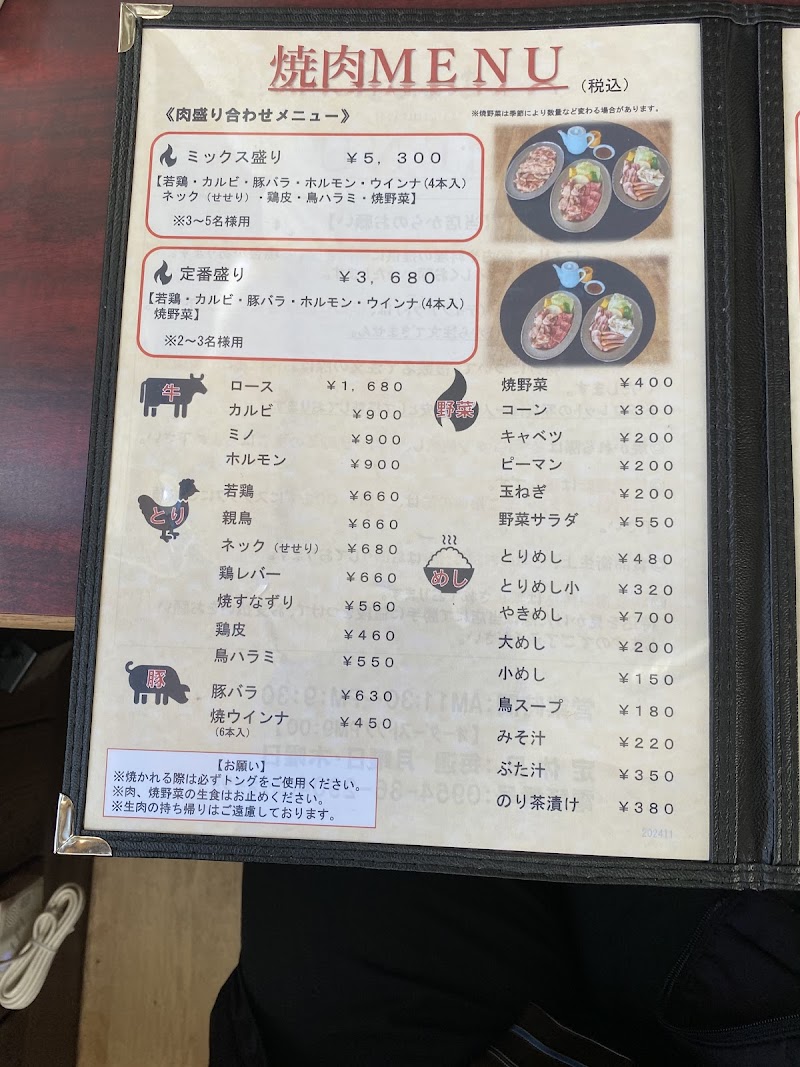 焼肉MENU (税込)
《肉盛り合わせメニュー》
※焼野菜は季節により数量など変わる場合があります。
ミックス盛り ￥5,300
【若鶏・カルビ・豚バラ・ホルモン・ウインナ(4本入)
ネック(せせり)・鶏皮・鳥ハラミ・焼野菜】
※3～5名様用
定番盛り ￥3,680
【若鶏・カルビ・豚バラ・ホルモン・ウインナ(4本入)
焼野菜】
※2～3名様用
牛
ロース ￥1,680
カルビ ￥900
ミノ ￥900
ホルモン ￥900
とり
若鶏 ￥660
親鳥 ￥660
ネック(せせり) ￥680
鶏レバー ￥660
焼すなずり ￥560
鶏皮 ￥460
鳥ハラミ ￥550
豚
豚バラ ￥630
焼ウインナ ￥450
(6本入)
野菜
焼野菜 ￥400
コーン ￥300
キャベツ ￥200
ピーマン ￥200
玉ねぎ ￥200
野菜サラダ ￥550
めし
とりめし ￥480
とりめし小 ￥320
やきめし ￥700
大めし ￥200
小めし ￥150
鳥スープ ￥180
みそ汁 ￥220
ぶた汁 ￥350
のり茶漬け ￥380
【お願い】
※焼かれる際は必ずトングをご使用ください。
※肉、焼野菜の生食はお止めください。
※生肉の持ち帰りはご遠慮しております。
202411